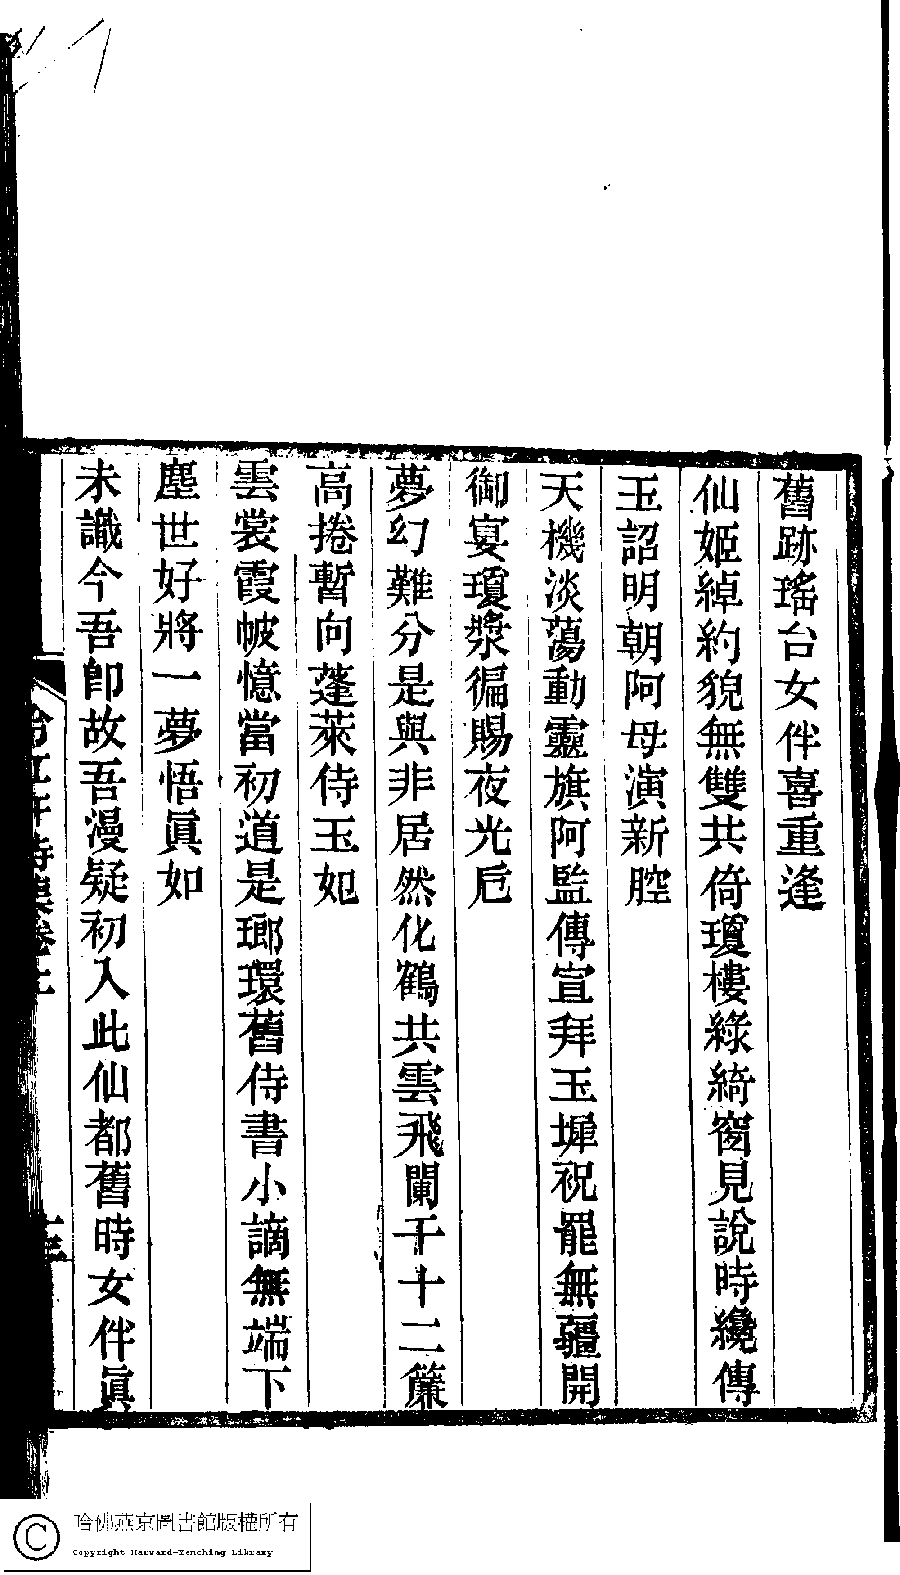 舊跡瑤台女伴喜重逢
仙姬綽約貌無雙共倚瓊樓綠綺窗見說時纔傳
玉詔明朝阿母演新腔
天機淡蕩動靈旗阿監傳宣拜玉墀祝罷無疆開
御宴瓊漿徧賜夜光卮
夢幻難分是與非居然化鶴共雲飛闌干十二簾
高捲暫向蓬萊侍玉妃
雲裳霞帔憶當初道是瑯環舊侍書小謫無端下
塵世好將一夢悟眞如
未識今吾卽故吾漫疑初入此仙都舊時女伴眞
哈佛燕京圖書館版權所有
Copyright Harvard-Yenching Library